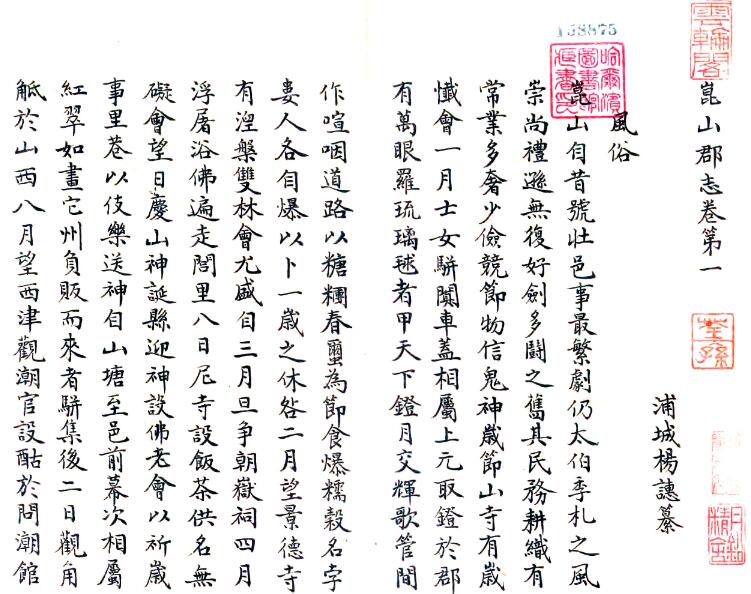 158875
雲輪閣
崑山郡志卷第一
荃孫
浦城楊譓纂
哈爾濱圖書館藏書印
風俗
崑山自昔號壯邑事最繁劇仍太伯季札之風
崇尚禮遜無復好劍多鬬之舊其民務耕織有
常業多奢少儉競節物信鬼神歲節山寺有歲
懺會一月士女駢闐車蓋相屬上元取鐙於郡
有萬眼羅琉璃毬者甲天下鐙月交輝歌管間
作喧咽道路以糖糰春蠒為節食爆糯穀名孛
婁人各自爆以卜一歲之休咎二月望景德寺
有涅槃雙林會尤盛自三月旦爭朝嶽祠四月
浮屠浴佛遍走閭里八日尼寺設飯茶供名無
礙會望日慶山神誕縣迎神設佛老會以祈歲
事里巷以伎樂送神自山塘至邑前幕次相屬
紅翠如畫它州負販而來者駢集後二日觀角
觝於山西八月望西津觀潮官設酤於問潮館